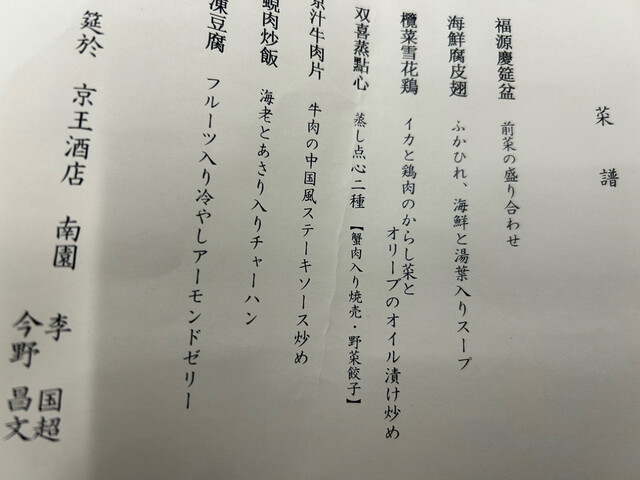 菜譜
福源慶筵盆 前菜の盛り合わせ
海鮮腐皮翅 ふかひれ、海鮮と湯葉入りスープ
欖菜雪花鶏 イカと鶏肉のからし菜と
オリーブのオイル漬け炒め
双喜蒸點心 蒸し点心二種【蟹肉入り焼売・野菜餃子】
汁牛肉片 牛肉の中国風ステーキソース炒め
肉炒飯 海老とあさり入りチャーハン
凍豆腐 フルーツ入り冷やしアーモンドゼリー
筵於 京王酒店 南園 李 国超
今野 昌文